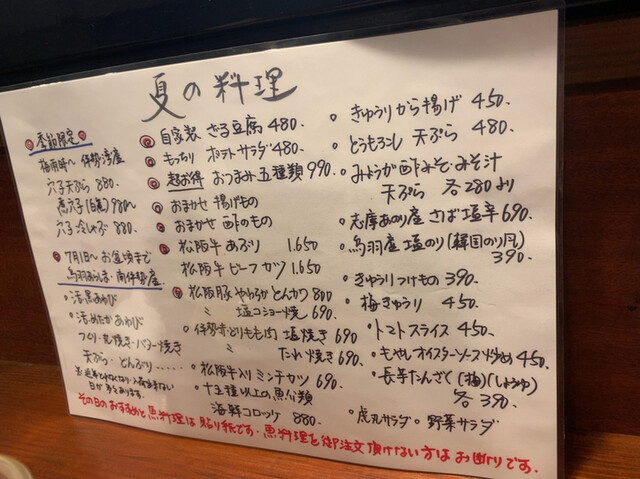 夏の料理
季節限定
梅雨時〜 伊勢湾産
穴子天ぷら 880.
煮穴子(白蒸) 980〜
穴子冷しゃぶ 880
7月1日〜お盆頃まで
鳥羽あらしま・南伊勢産
・活黒あわび
・活めたかあわび
つくり・丸焼き・バター焼き
天ぷら・どんぶり・・・・・
自家製 ざる豆腐 480.
もっちり ポテトサラダ 480.
超お得 おつまみ五種類 990.
おまかせ 揚げもの
おまかせ 酢のもの
松阪牛 あぶり 1.650
松阪牛 ビーフカツ 1.650
松阪豚 やわらかとんカツ 800
〃 塩コショー焼 690.
・伊勢赤どりもも肉 塩焼き 690
〃 たれ焼き 690.
・松阪牛入りミンチカツ 690.
・十五種以上の魚介類
海鮮コロッケ 880.
・きゅうりから揚げ 450.
・とうもろこし 天ぷら 480.
・みょうが酢みそ・みそ汁
天ぷら 各280より
・志摩あのり産 さば塩辛 690.
・鳥羽産 塩のり(韓国のり風)
390.
・きゅうりつけもの 390.
・梅きゅうり 450.
・トマトスライス 450.
・もやしオイスターソース炒め 450.
・長芋たんざく(梅)(しょうゆ)
各 390.
・虎丸サラダ ・野菜サラダ
その日のおすすめと魚料理は貼り紙です。魚料理を御注文頂けない方はお断りです.